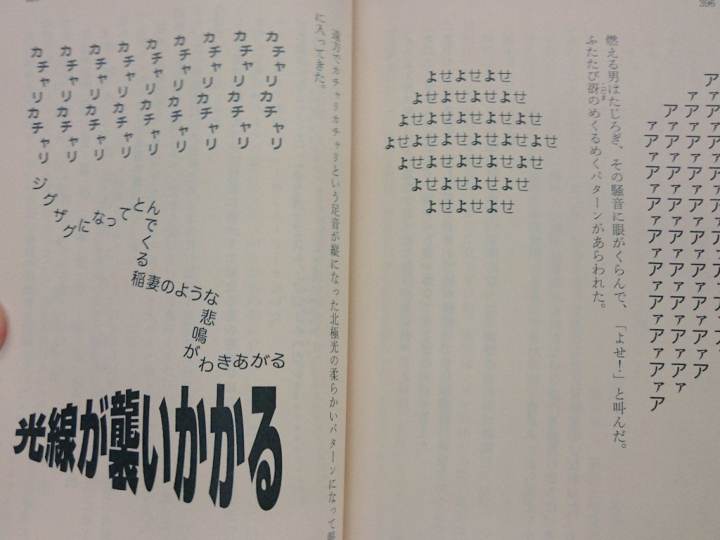 アァアァアァアァアァアァアァ
アァアァアァアァアァアァアァ
ァアァアァアァアァアァアァア
燃える男はたじろぎ、その騒音に眼がくらんで、「よせ!」と叫んだ。
ふたたび谺のめくるめくパターンがあらわれた。
よせよせよせ
よせよせよせよせ
よせよせよせよせよせ
よせよせよせよせよせよせ
よせよせよせよせよせ
よせよせよせよせ
よせよせよせ
遠方でカチャリカチャリという足音が縦になった北極光の柔らかいパターンになって眼
に入ってきた。
カチャリカチャリ
カチャリカチャリ
カチャリカチャリ
カチャリカチャリ
カチャリカチャリ
カチャリカチャリ
カチャリカチャリ
カチャリカチャリ
カチャリカチャリ
ジグザグになってとんでくる
稲妻のような
悲鳴が
わきあがる
光線が襲いかかる